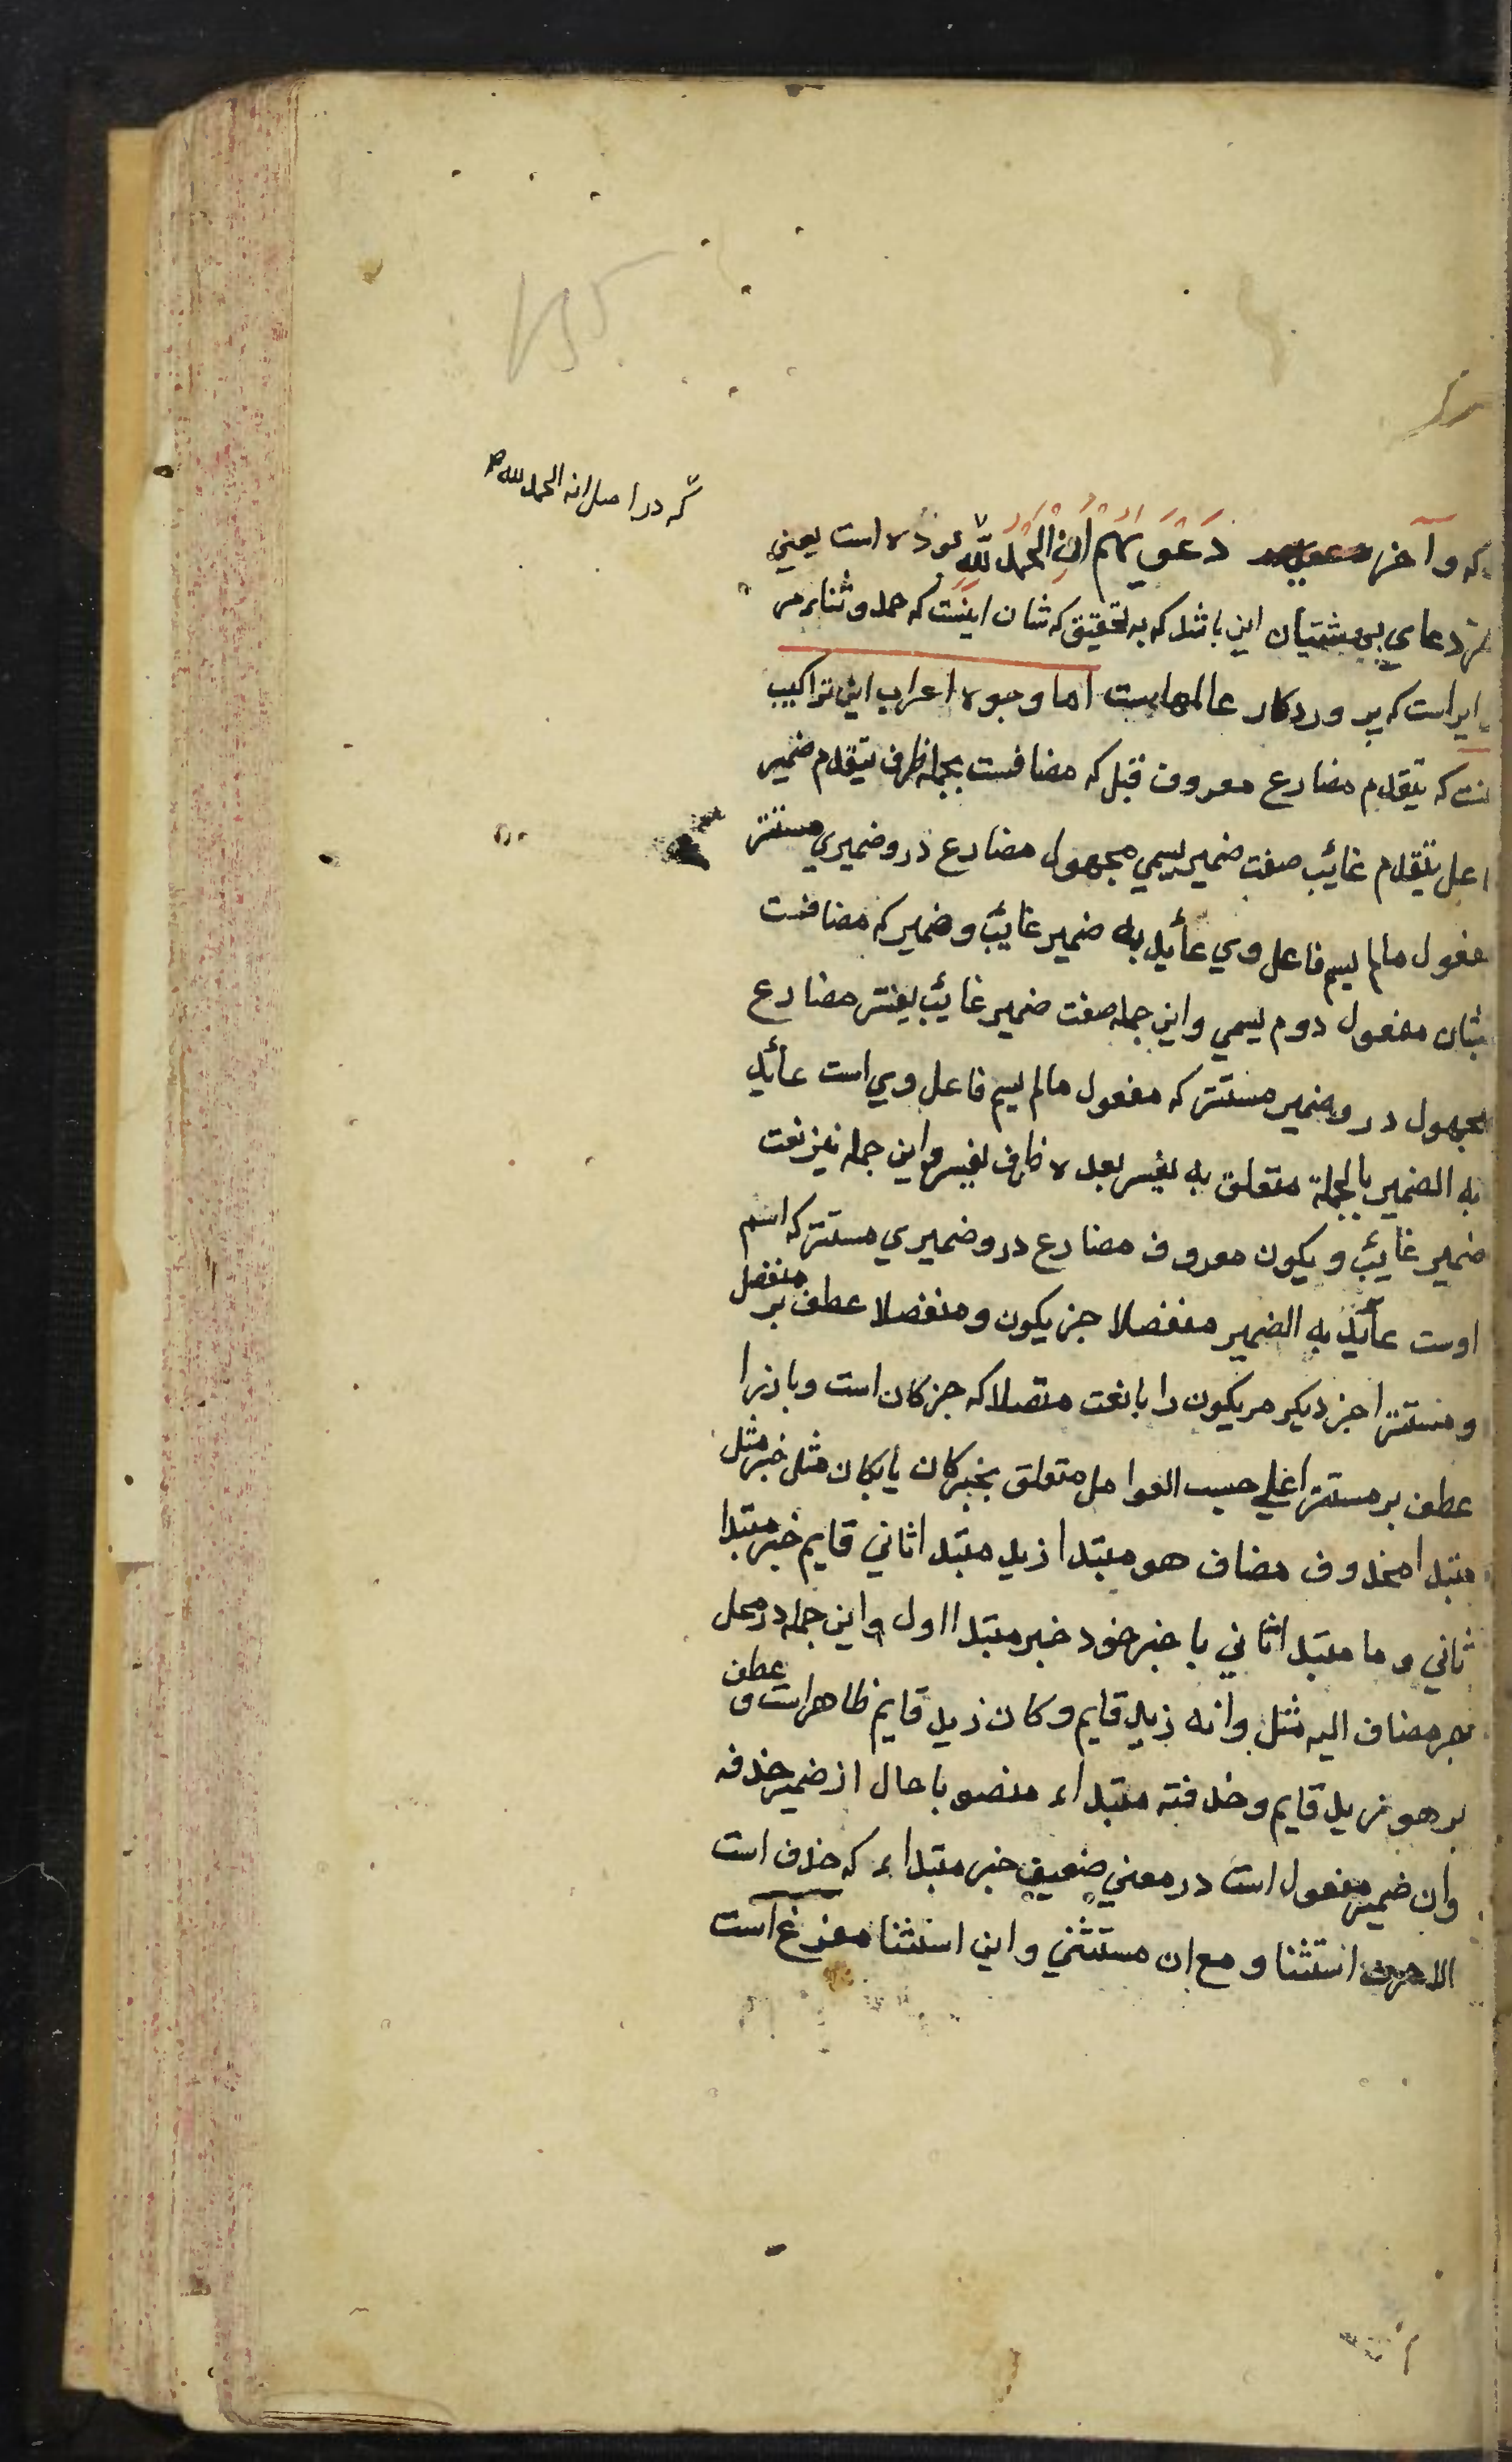 که در اصل انه الحمد لله
که و آخر دَعْوَيهُمْ اَنِ الْحَمْدُ لِلّٰهِ بوده است یعنی
دعای بهشتیان این باشد که به تحقیق که شان اینست که حمد و ثناء مر
ایراست که پروردکار عالمهاست اما وجوه اعراب این تراکیب
که یتقدم مضارع معروف قبل که مضافست بجمله ظرف یتقدم ضمیر
یتقدم غائب صفت ضمیر یسمی مجهول مضارع درو ضمیری مستتر
مفعول مالم یسم فاعل وی عاید به ضمیر غایب و ضمیر که مضافست
بشان مفعول دوم یسمی و این جمله صفت ضمیر غایب یفسر مضارع
مجهول درو ضمیر مستتر که مفعول مالم یسم فاعل وی است عائد
به الضمیر بالجملة متعلق به یفسر بعده ظرف یفسر و این جمله نیز نعت
ضمیر غایب و یکون معروف مضارع درو ضمیری مستتر که اسم
اوست عاید به الضمیر منفصلا خبر یکون و منفصلا عطف بر منفصل
و مستترا خبر دیکر مر یکون را با نعت متصلا که خبر کان است و بارزا
عطف بر مستترا علی حسب العوامل متعلق بخبر کان یا بکان مثل خبر مثل
مبتدا محذوف مضاف هو مبتدا زید مبتدا ثانی قایم خبر مبتدا
ثانی و ما مبتدا ثانی با خبر خود خبر مبتدا اول و این جمله در محل
بجر مضاف الیه مثل و انه زید قایم و کان زید قایم ظاهر است و عطف
بر هو زید قایم و حذفته مبتداء منصوبا حال از ضمیر حذفه
وان ضمیر مفعول است در معنی ضعیف خبر مبتداء که حذف است
الا حرف استثنا و مع ان مستثنی و این استثنا مفرغ است